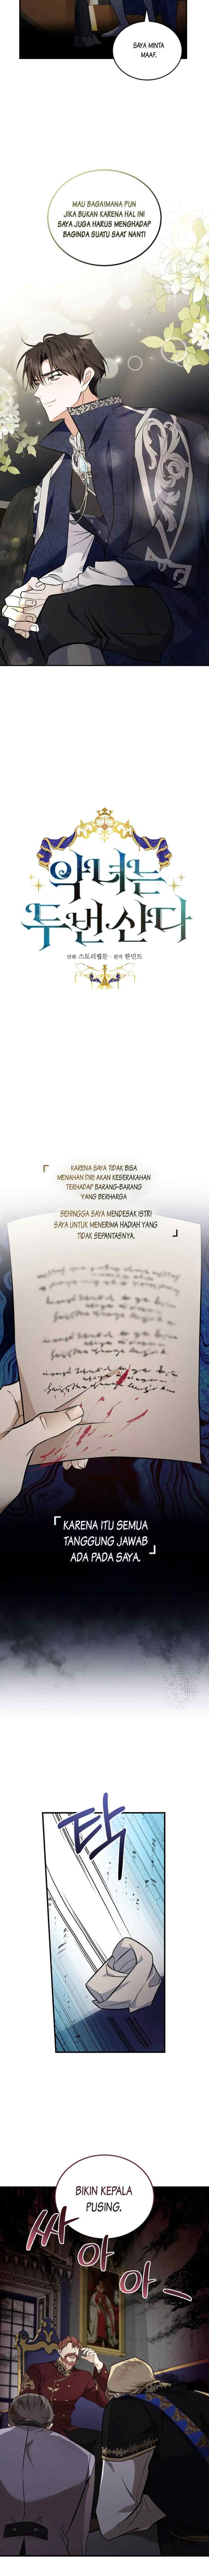 SAYA MINTA
MAAF.
MAU BAGAIMANA PUN
JIKA BUKAN KARENA HAL INI
SAYA JUGA HARUS MENGHADAP
BAGINDA SUATU SAAT NANTI
악녀는
두 번 산다
만화 스토리웹툰 · 원작 한민트
「 KARENA SAYA TIDAK BISA
MENAHAN DIRI AKAN KESERAKAHAN
TERHADAP BARANG-BARANG
YANG BERHARGA
SEHINGGA SAYA MENDESAK ISTRI
SAYA UNTUK MENERIMA HADIAH YANG
TIDAK SEPANTASNYA. 」
「 KARENA ITU SEMUA
TANGGUNG JAWAB
ADA PADA SAYA. 」
탁
BIKIN KEPALA
PUSING.
싸아아